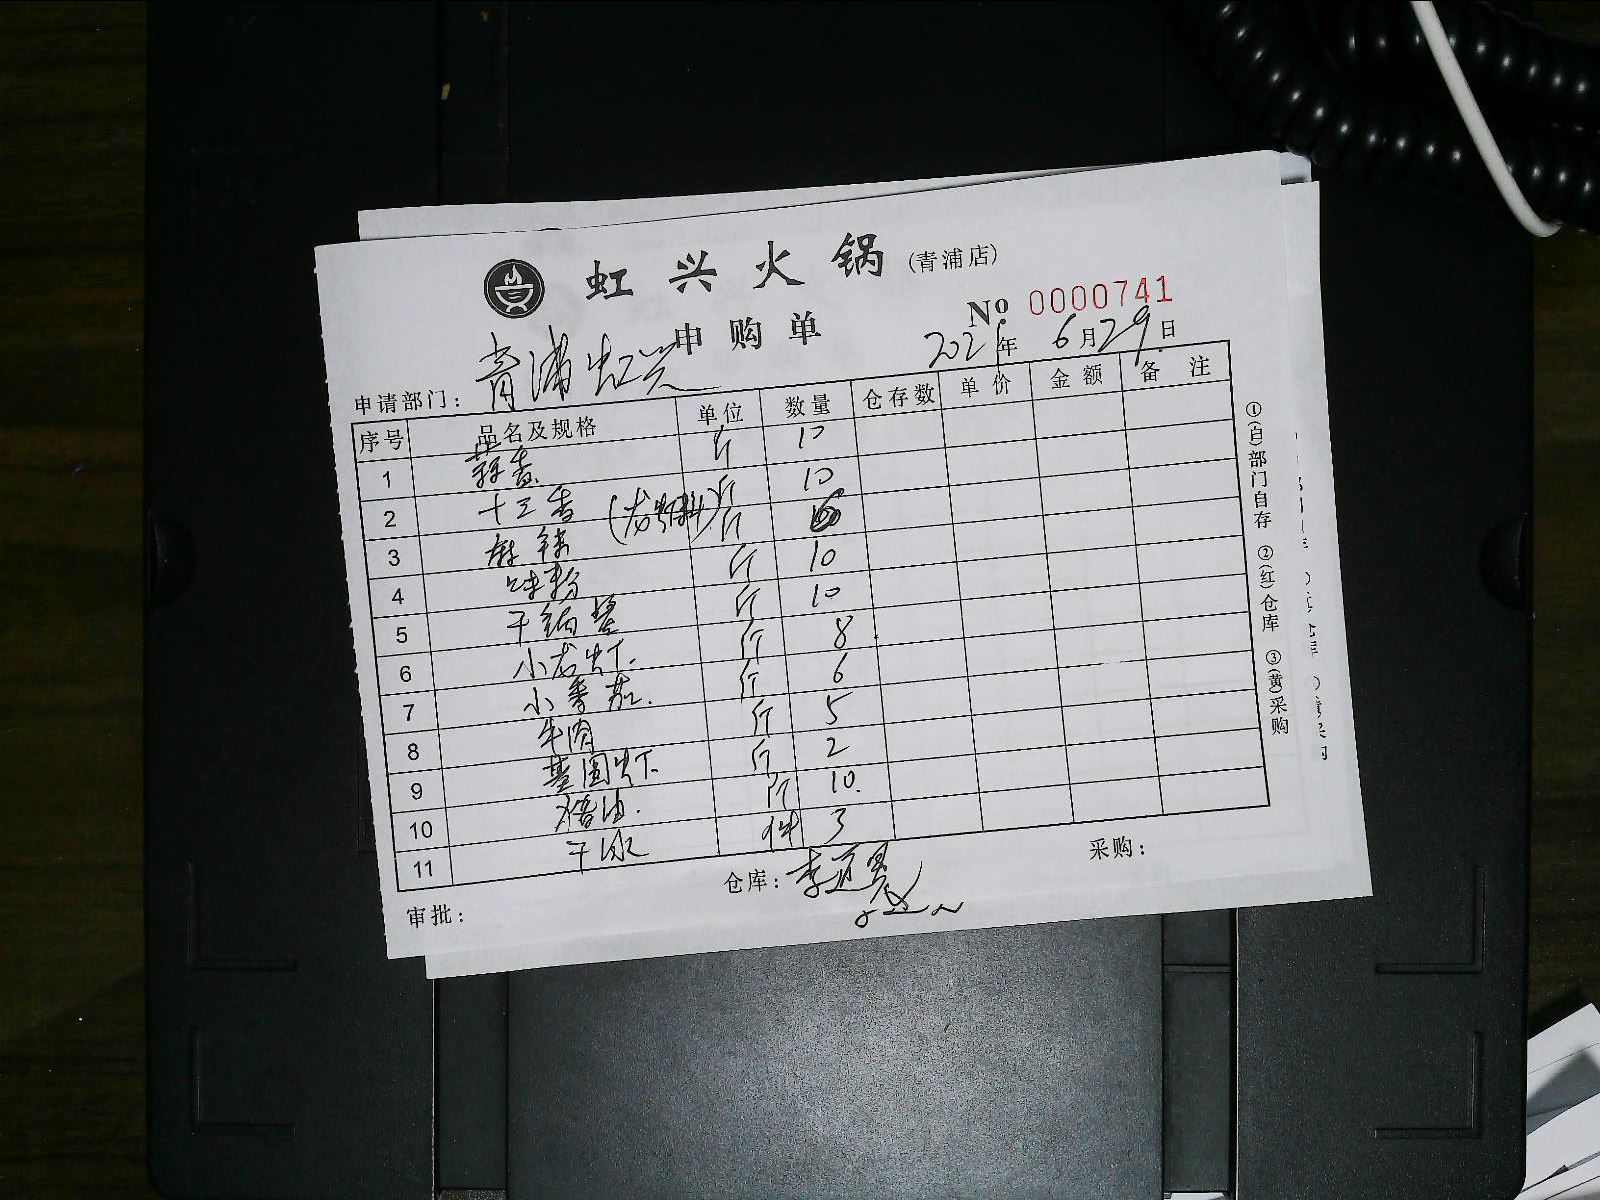 虹兴火锅(青浦店)
申购单
No 0000741
2021年6月29日
申请部门: 青浦虹兴
序号 品名及规格 单位 数量 仓存数 单价 金额 备注
1 蒜香 斤 10
2 十三香 (龙虾料) 斤 10
3 麻辣 斤
4 味粉 斤 10
5 干锅酱 斤 10
6 小龙虾 斤 8
7 小番茄 斤 6
8 牛肉 斤 5
9 基围虾 斤 2
10 斤 10
11 干冰 件 3
审批:
仓库:
采购:
①(白)部门自存 ②(红)仓库 ③(黄)采购